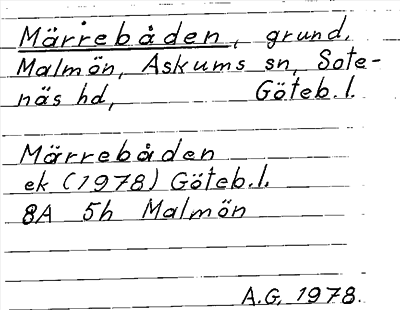 Märrebåden, grund,
Malmön, Askums sn, Sote-
näs hd, Göteb.l.
Märrebåden
ek (1978) Göteb.l.
8A 5h Malmön
A.G. 1978.